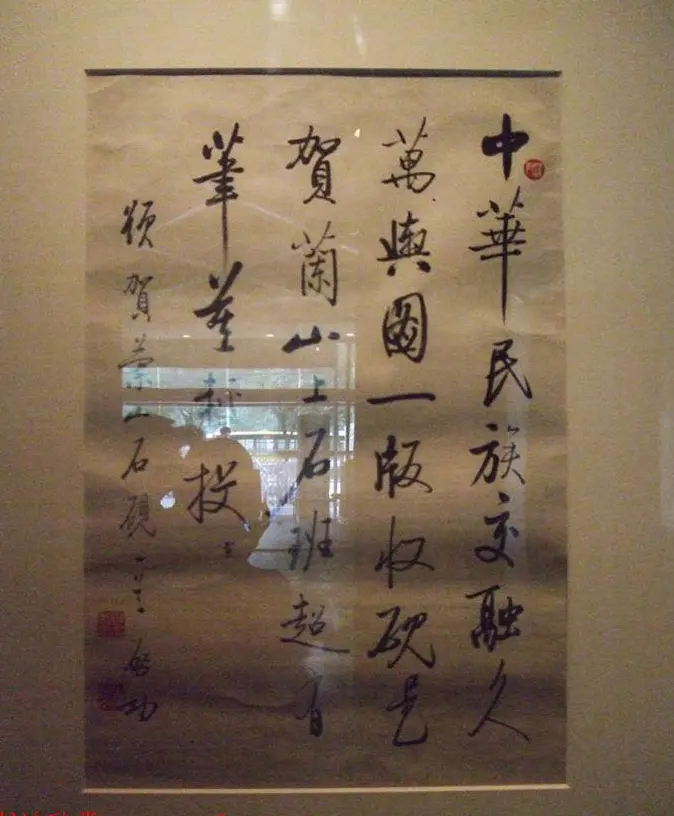 中華民族交融久
萬輿圖一版收硯是
賀蘭山上石班超有
筆莫輕投
題賀蘭山石硯 啟功